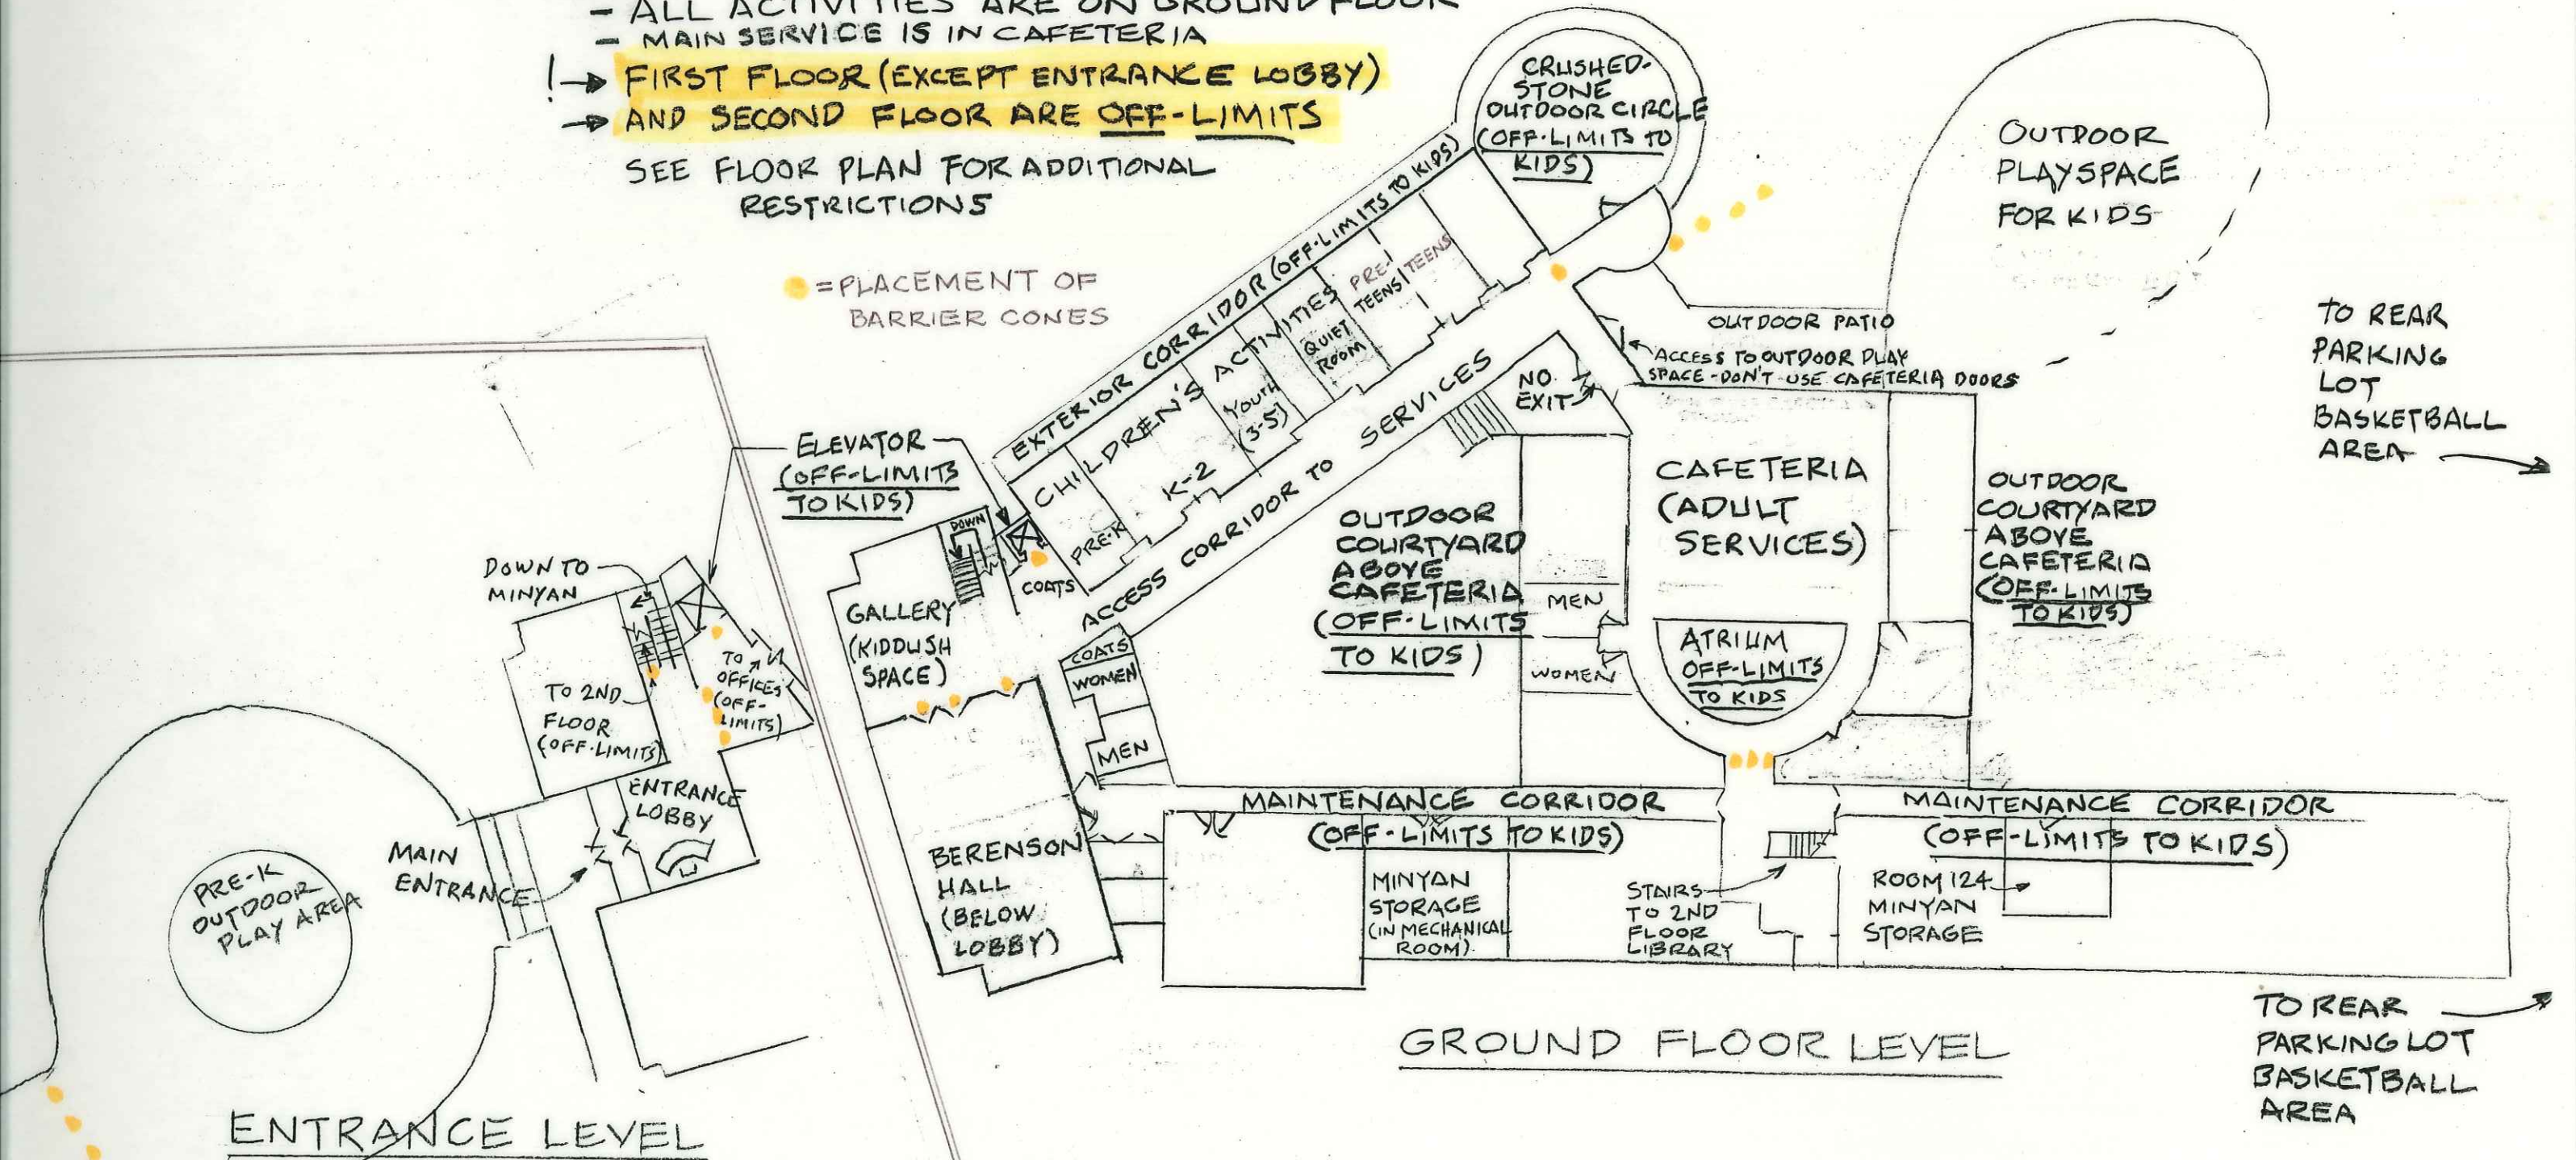 - ALL ACTIVITIES ARE ON GROUND FLOOR
- MAIN SERVICE IS IN CAFETERIA
!→ FIRST FLOOR (EXCEPT ENTRANCE LOBBY)
→ AND SECOND FLOOR ARE OFF-LIMITS
SEE FLOOR PLAN FOR ADDITIONAL
RESTRICTIONS
= PLACEMENT OF
BARRIER CONES
CRUSHED-
STONE
OUTDOOR CIRCLE
(OFF-LIMITS TO
KIDS)
OUTDOOR
PLAYSPACE
FOR KIDS
TO REAR
PARKING
LOT
BASKETBALL
AREA
EXTERIOR CORRIDOR (OFF-LIMITS TO KIDS)
CHILDREN'S ACTIVITIES
PRE-K
K-2
YOUTH
(3-5)
QUIET
ROOM
PRE-
TEENS
TEENS
ACCESS CORRIDOR TO SERVICES
OUTDOOR PATIO
ACCESS TO OUTDOOR PLAY
SPACE - DON'T USE CAFETERIA DOORS
NO
EXIT
ELEVATOR
(OFF-LIMITS
TO KIDS)
DOWN
COATS
GALLERY
(KIDDUSH
SPACE)
COATS
WOMEN
MEN
OUTDOOR
COURTYARD
ABOVE
CAFETERIA
(OFF-LIMITS
TO KIDS)
MEN
WOMEN
CAFETERIA
(ADULT
SERVICES)
ATRIUM
OFF-LIMITS
TO KIDS
OUTDOOR
COURTYARD
ABOVE
CAFETERIA
(OFF-LIMITS
TO KIDS)
DOWN TO
MINYAN
TO 2ND
FLOOR
(OFF-LIMITS)
TO
OFFICES
(OFF-
LIMITS)
ENTRANCE
LOBBY
MAIN
ENTRANCE
PRE-K
OUTDOOR
PLAY AREA
ENTRANCE LEVEL
BERENSON
HALL
(BELOW
LOBBY)
MAINTENANCE CORRIDOR
(OFF-LIMITS TO KIDS)
MINYAN
STORAGE
(IN MECHANICAL
ROOM)
STAIRS
TO 2ND
FLOOR
LIBRARY
MAINTENANCE CORRIDOR
(OFF-LIMITS TO KIDS)
ROOM 124
MINYAN
STORAGE
GROUND FLOOR LEVEL
TO REAR
PARKING LOT
BASKETBALL
AREA